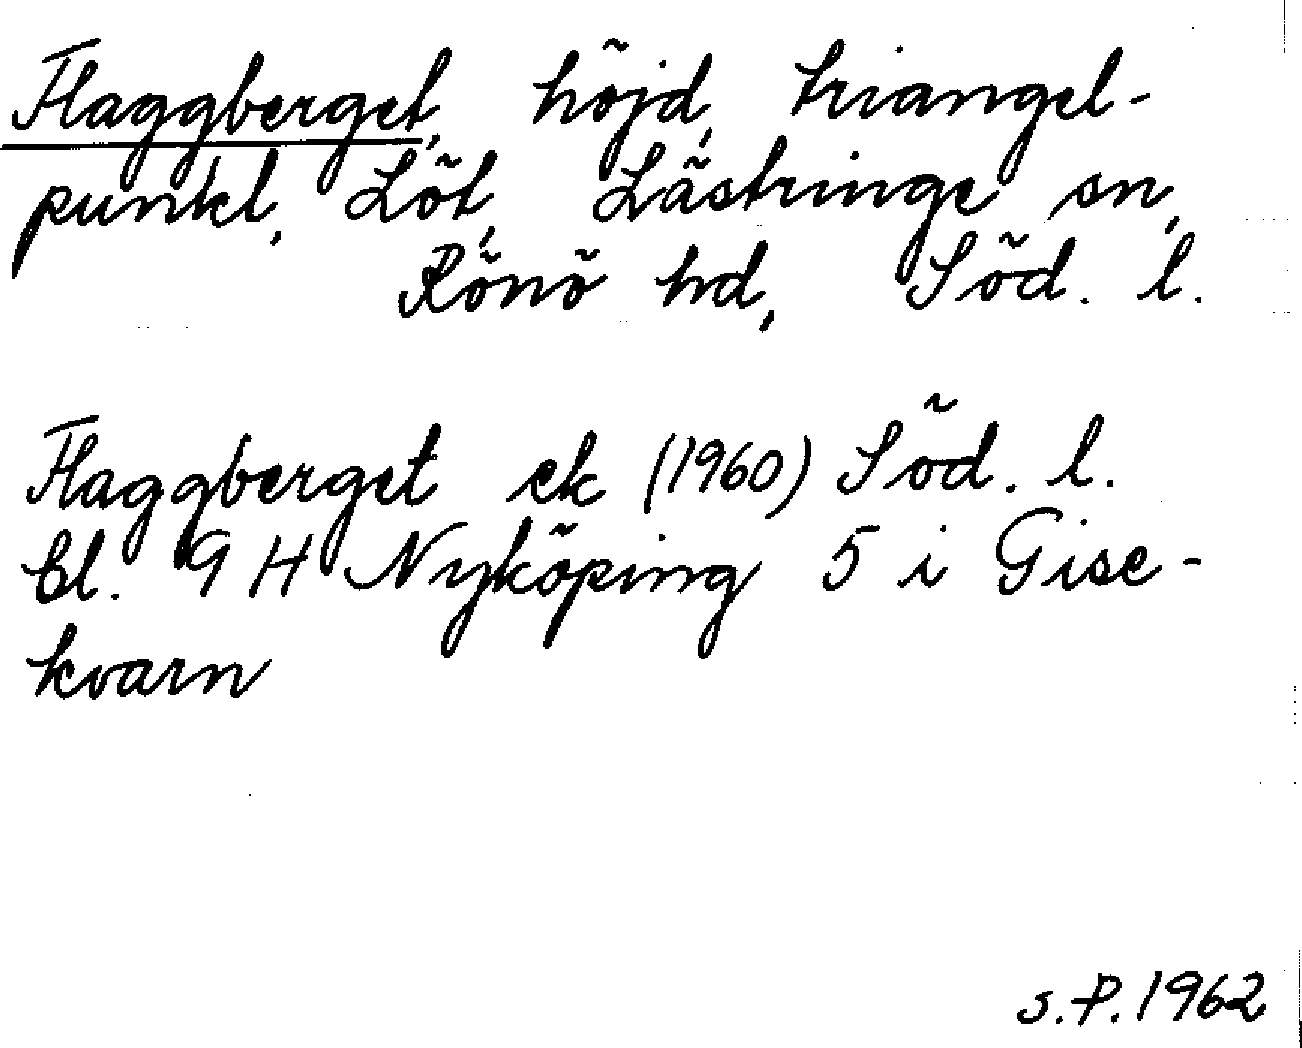 Flaggberget, höjd, triangel-
punkt, Löt, Lästringe sn,
Rönö hd, Söd. l.
Flaggberget ek (1960) Söd. l.
bl. 9 H Nyköping 5 i Gise-
kvarn
S.P. 1962